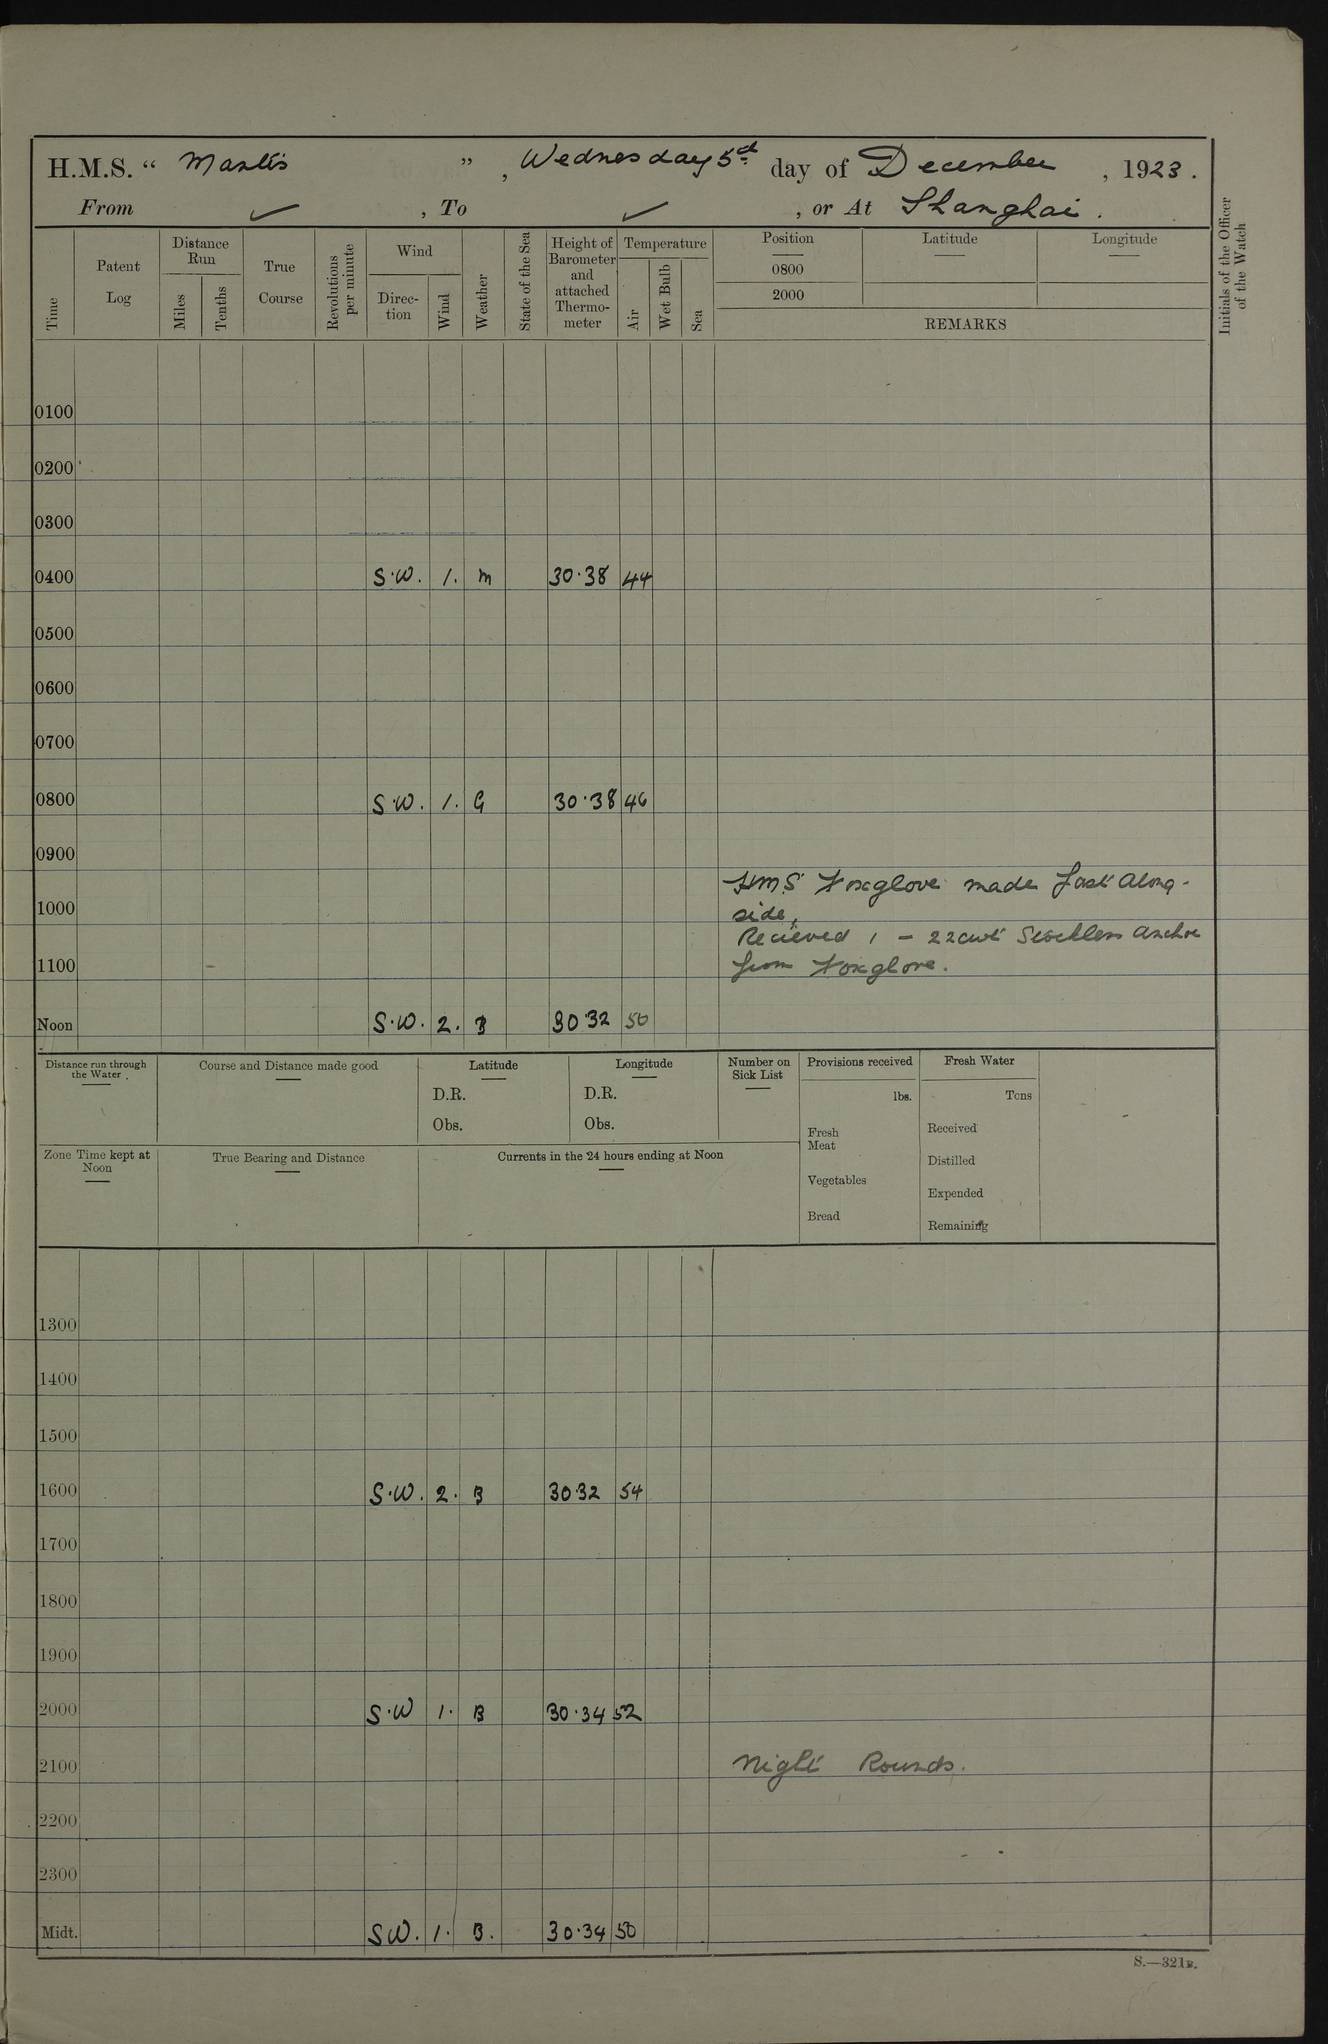 H.M.S. “ Mantis ” , Wednesday 5th day of December , 1923 .
From ✓ , To ✓ , or At Shanghai .
Time
Patent Log
Distance Run
Miles
Tenths
True Course
Revolutions per minute
Wind
Direc-tion
Wind
Weather
State of the Sea
Height of Barometer and attached Thermo-meter
Temperature
Air
Wet Bulb
Sea
Position
0800
2000
Latitude
Longitude
REMARKS
Initials of the Officer of the Watch
0100
0200
0300
0400 S.W. 1. m 30.38 44
0500
0600
0700
0800 S.W. 1. G 30.38 46
0900
HMS Foxglove made fast along-
1000 side,
Recieved 1 - 22cwt Stockless Anchor
1100 from Foxglove.
Noon S.W. 2. B 30.32 50
Distance run through the Water
Course and Distance made good
Latitude
D.R.
Obs.
Longitude
D.R.
Obs.
Number on Sick List
Provisions received
lbs.
Fresh Meat
Vegetables
Bread
Fresh Water
Tons
Received
Distilled
Expended
Remaining
Zone Time kept at Noon
True Bearing and Distance
Currents in the 24 hours ending at Noon
1300
1400
1500
1600 S.W. 2. B 30.32 54
1700
1800
1900
2000 S.W 1. B 30.34 52
2100 Night Rounds.
2200
2300
Midt. SW. 1. B. 30.34 50
S.—321B.